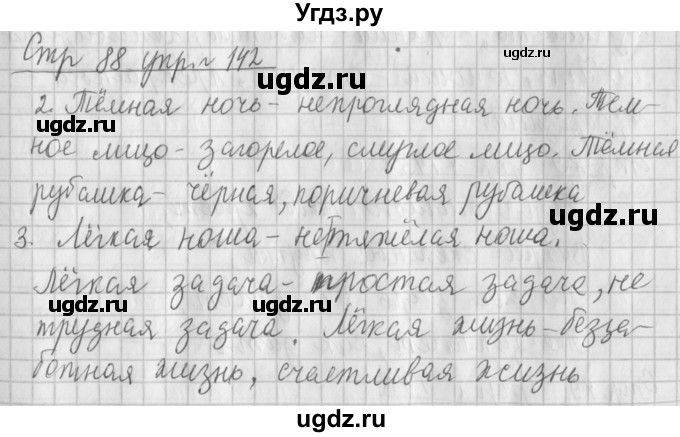 Угдз.ру
Стр 88 упр. 142
ugdz.ru
ugdz.ru
2. Тёмная ночь - непроглядная ночь. Тем-
ugdz.ru
ugdz.ru
ное лицо - загорелое, смуглое лицо. Тёмная
рубашка - чёрная, поричневая рубашка
ugdz.ru
3. Лёгкая ноша - не тяжёлая ноша.
Лёгкая задача - простая задача, не
ugdz.ru
ugdz.ru
трудная задача. Лёгкая жизнь - безза-
ботная жизнь, счастливая жизнь
ugdz.ru
ugdz.ru